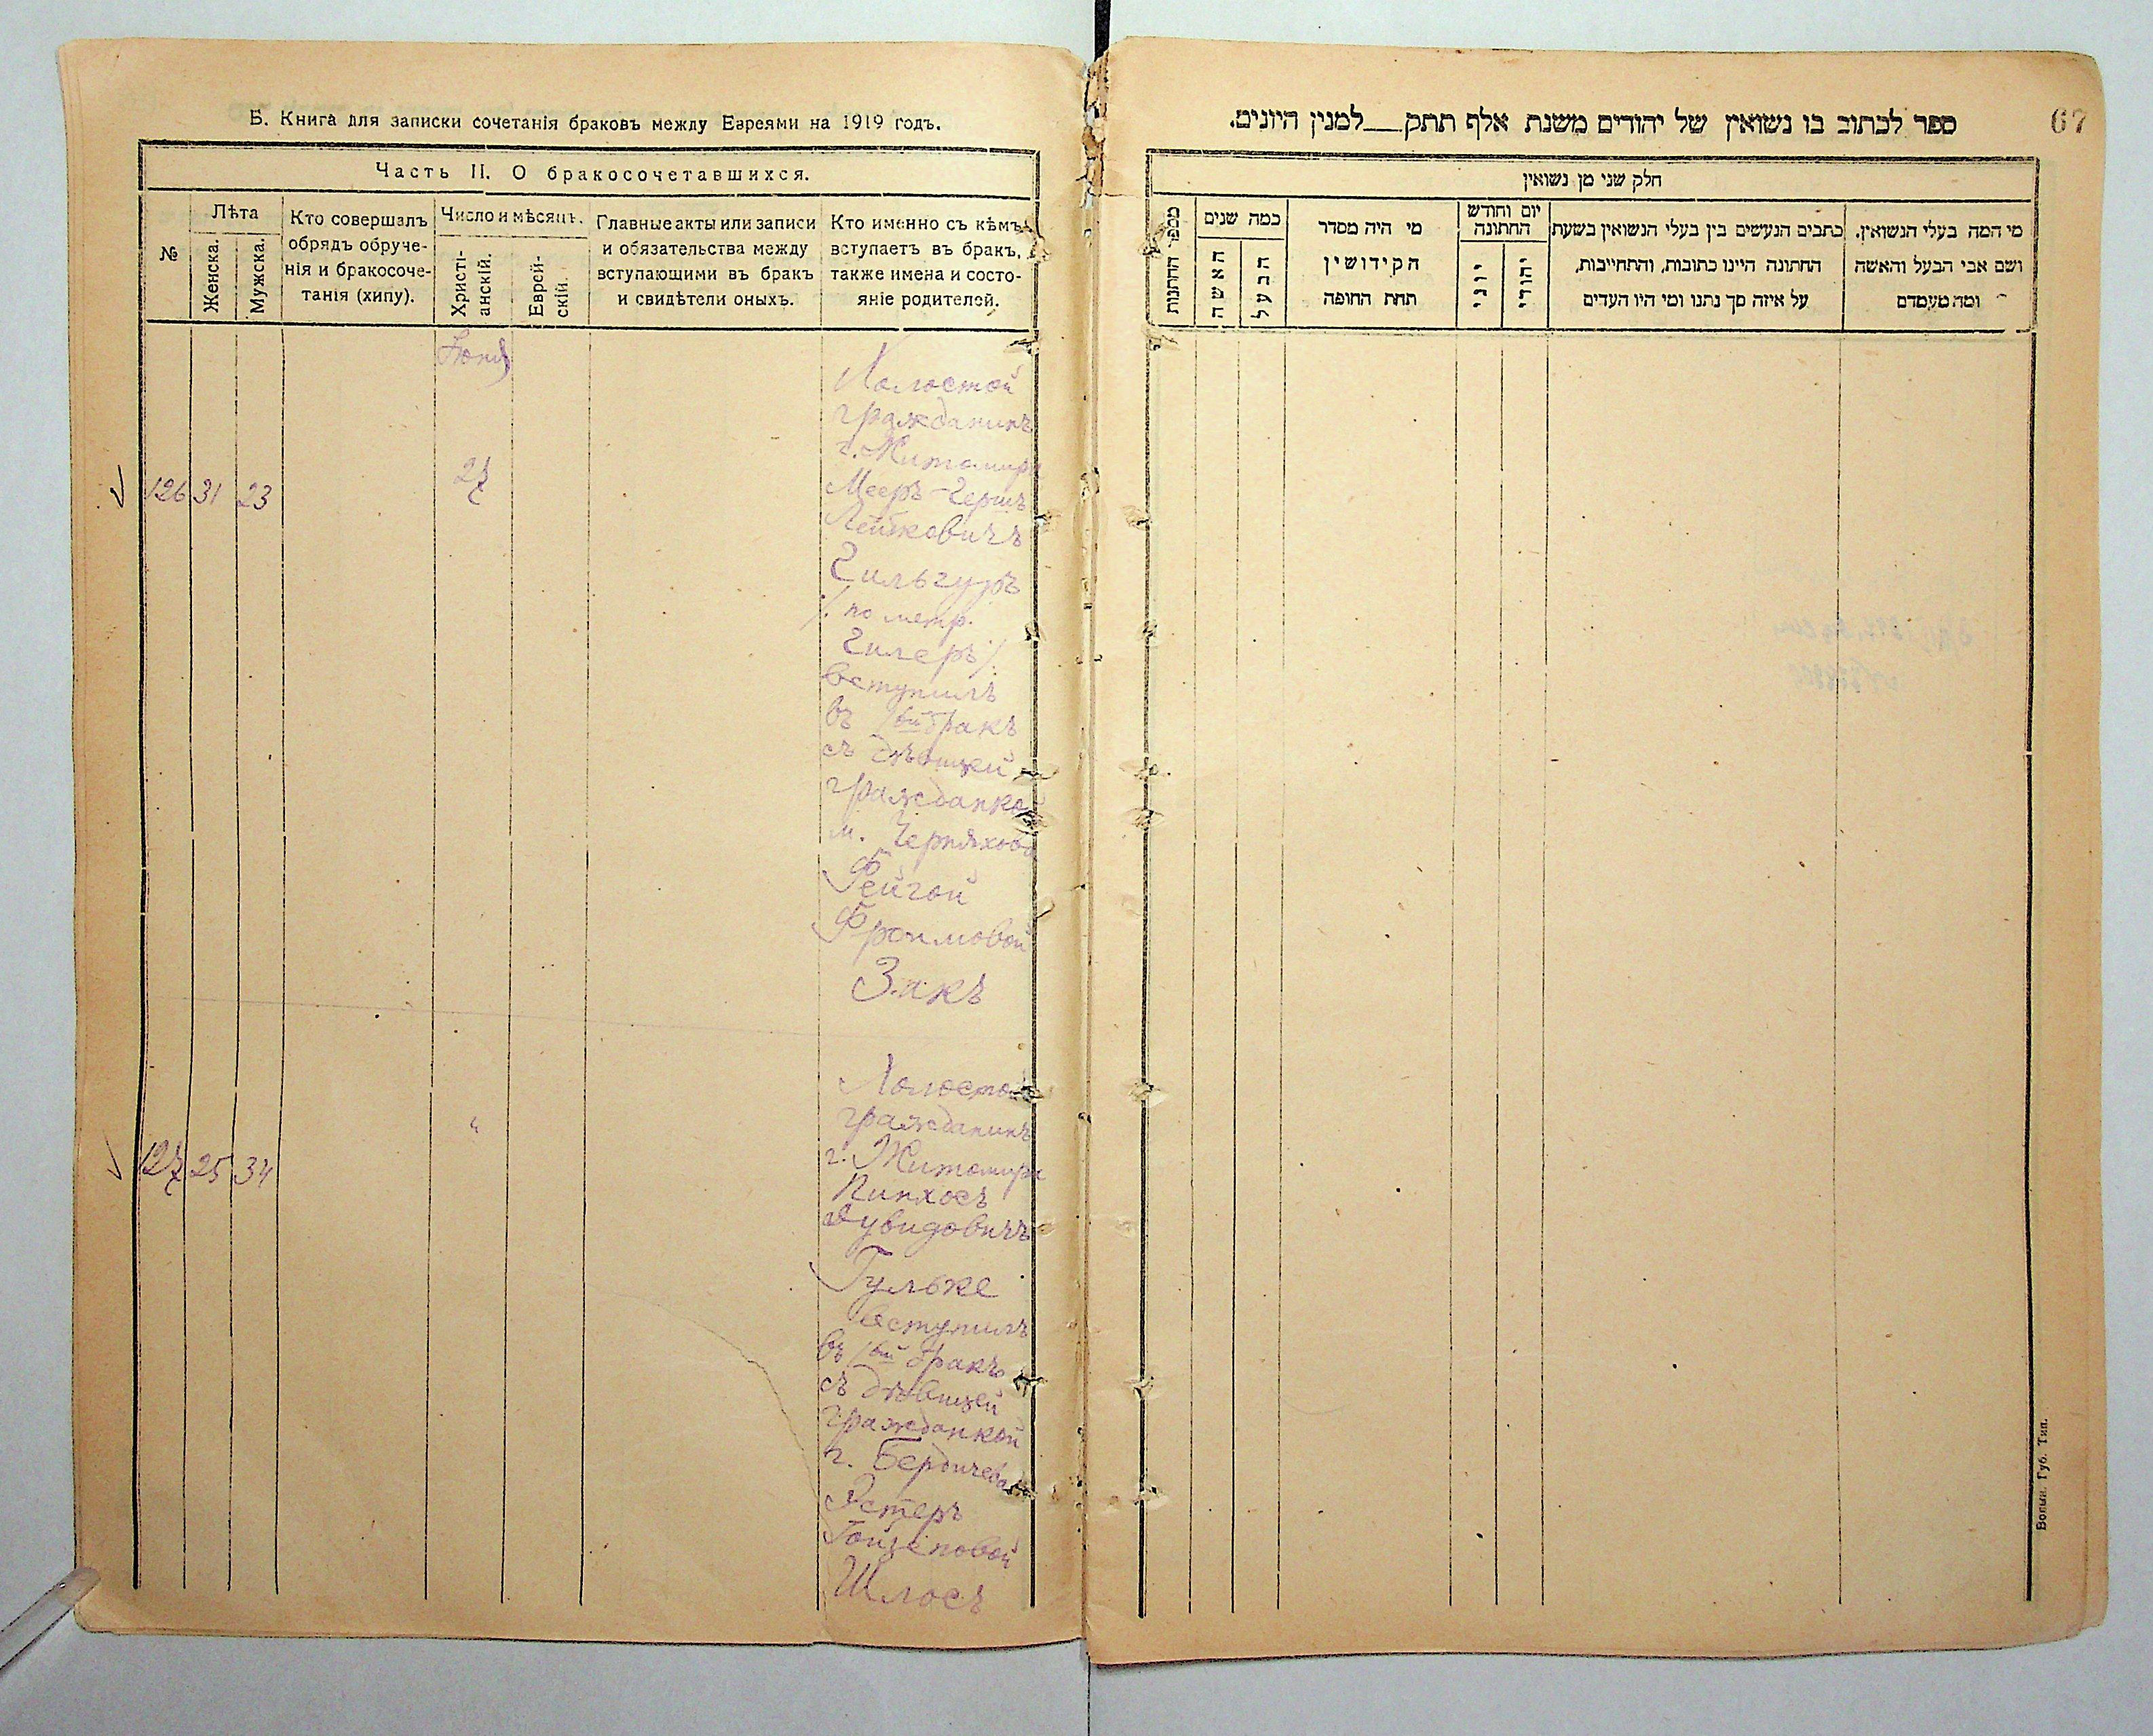 Б. Книга для записки сочетанія браковъ между Евреями на 1919 годъ.
Часть II. О бракосочетавшихся.
№
Лѣта
Женска.
Мужска.
Кто совершалъ
обрядъ обруче-
нія и бракосоче-
танія (хипу).
Число и мѣсяцъ.
Христі-
анскій.
Еврей-
скій.
Главные акты или записи
и обязательства между
вступающими въ бракъ
и свидѣтели оныхъ.
Кто именно съ кѣмъ
вступаетъ въ бракъ,
также имена и состо-
яніе родителей.
126 31 23
27
Холостой
гражданинъ
г. Житомира
Мееръ-Гершъ
Лейковичъ
Гильгуръ
/. по метр.
Гилеръ /.
вступилъ
въ 1ый бракъ
съ дѣвицей
гражданкой
м. Черняхова
Фейгой
Фроимовой
Закъ
127 25 34
"
Холостой
гражданинъ
г. Житомира
Пинхосъ
Дувидовичъ
Гульке
вступилъ
въ 1ый бракъ
съ дѣвицей
гражданкой
г. Бердичева
Эстеръ
Шлосъ
67
ספר לכתוב בו נשואין של יהודים משנת אלף תתק__למנין היונים.
חלק שני מן נשואין
מספר החתנות
כמה שנים
האשה
הבעל
מי היה מסדר
הקידושין
תחת החופה
יום וחודש
החתונה
יוני
יהודי
כתבים הנעשים בין בעלי הנשואין בשעת
החתונה היינו כתובות, והתחייבות,
על איזה סך נתנו ומי היו העדים
מי המה בעלי הנשואין.
ושם אבי הבעל והאשה
ומה מעמדם
Волын. Губ. Тип.